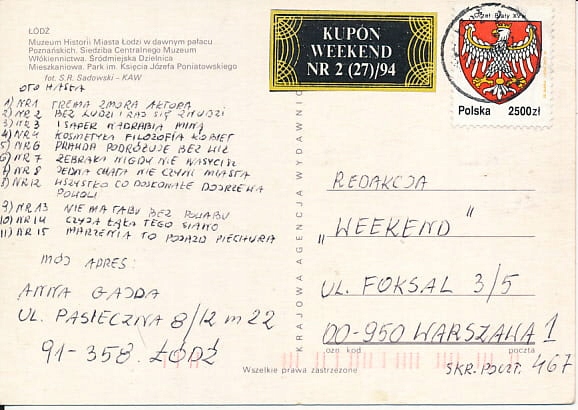 ŁÓDŹ
Muzeum Historii Miasta Łodzi w dawnym pałacu
Poznańskich. Siedziba Centralnego Muzeum
Włókiennictwa. Śródmiejska Dzielnica
Mieszkaniowa. Park im. Księcia Józefa Poniatowskiego
fot. S.R. Sadowski - KAW
OTO HASŁA
1) NR 1 TREMA ZMORĄ AKTORA
2) NR 2 BEZ LUDZI RAJ SIĘ ZNUDZI
3) NR 3 I SAPER NADRABIA MINĄ
4) NR 4 KOSMETYKA FILOZOFIĄ KOBIET
5) NR 6 PRAWDA PODRÓŻUJE BEZ WIZ
6) NR 7 ŻEBRAKA NIGDY NIE NASYCISZ
7) NR 8 JEDNA CHATA NIE CZYNI MIASTA
8) NR 12 WSZYSTKO CO DOSKONAŁE DOJRZEWA
POWOLI
9) NR 13 NIE MA TABU BEZ POWABU
10) NR 14 CZYJA ŁĄKA TEGO SIANO
11) NR 15 MARZENIA TO POJAZD PIECHURA
MÓJ ADRES:
ANNA GAJDA
UL. PASIECZNA 8/12 m 22
91-358 ŁÓDŹ
KRAJOWA AGENCJA WYDAWNIC
KUPON
WEEKEND
NR 2 (27)/94
Orzeł Biały XV w.
Polska 2500zł
REDAKCJA
„WEEKEND"
UL. FOKSAL 3/5
00-950 WARSZAWA 1
ozn kod poczta
SKR. POCZT. 467
Wszelkie prawa zastrzeżone